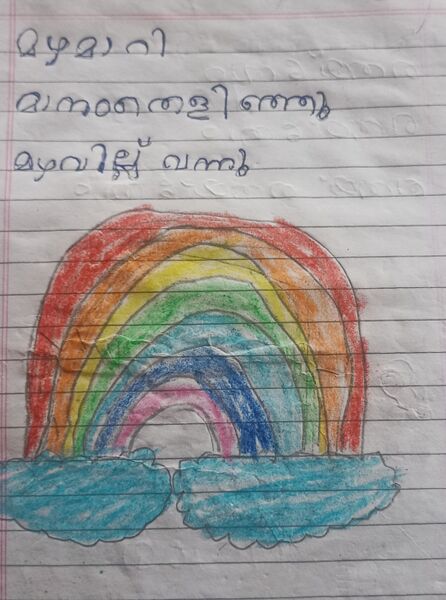 മഴമാറി
മാനംതെളിഞ്ഞു
മഴവില്ല് വന്നു